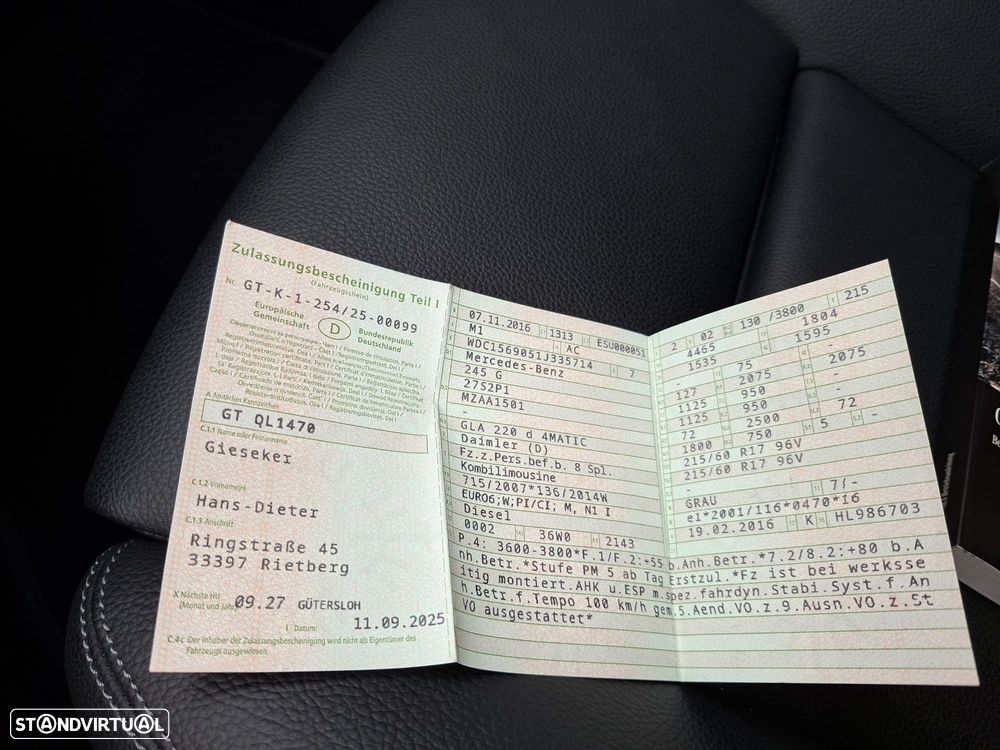 Zulassungsbescheinigung Teil I
(Fahrzeugschein)
Nr. GT-K-1-254/25-00099
Europäische Gemeinschaft
D
Bundesrepublik Deutschland
A Amtliches Kennzeichen
GT QL1470
C.1.1 Name oder Firmenname
Gieseker
C.1.2 Vorname(n)
Hans-Dieter
C.1.3 Anschrift
Ringstraße 45
33397 Rietberg
X Nächste HU
(Monat und Jahr)
09.27 GÜTERSLOH
I Datum:
11.09.2025
C.4c Der Inhaber der Zulassungsbescheinigung wird nicht als Eigentümer des
Fahrzeugs ausgewiesen.
07.11.2016 1313 ESU000051
M1 AC
WDC1569051J335714 7
Mercedes-Benz
245 G
27S2P1
MZAA1501
-
GLA 220 d 4MATIC
Daimler (D)
Fz.z.Pers.bef.b. 8 Spl.
Kombilimousine
715/2007*136/2014W
EURO6;W;PI/CI; M, N1 I
Diesel
0002 36W0 2143
2 02 130 /3800 215
4465 1804
1535 1595
- 75 -
127 2075 2075
1125 950 -
1125 950 -
72 2500 72
1800 750 5 -
215/60 R17 96V
215/60 R17 96V
-
GRAU 7/-
e1*2001/116*0470*16
19.02.2016 K HL986703
P.4: 3600-3800*F.1/F.2:+55 b.Anh.Betr.*7.2/8.2:+80 b.A
nh.Betr.*Stufe PM 5 ab Tag Erstzul.*Fz ist bei werksse
itig montiert.AHK u.ESP m.spez.fahrdyn.Stabi.Syst.f.An
h.Betr.f.Tempo 100 km/h gem.5.Aend.VO.z.9.Ausn.VO.z.St
VO ausgestattet*
STANDVIRTUAL